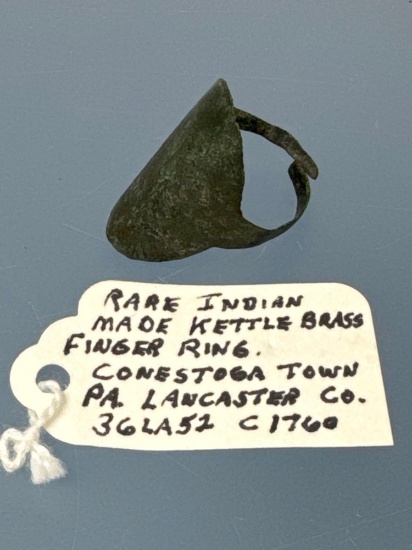 RARE INDIAN
MADE KETTLE BRASS
FINGER RING.
CONESTOGA TOWN
PA. LANCASTER CO.
36LA52 C 1760